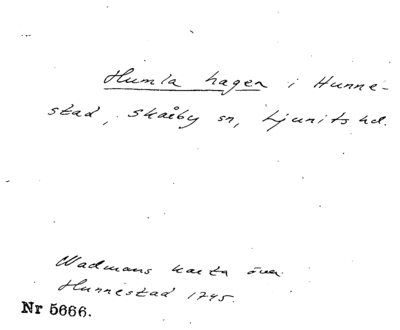 Humla hagen i Hunne-
stad, Skårby sn, Ljunits hd.
Wadmans karta över
Hunnestad 1745.
Nr 5666.